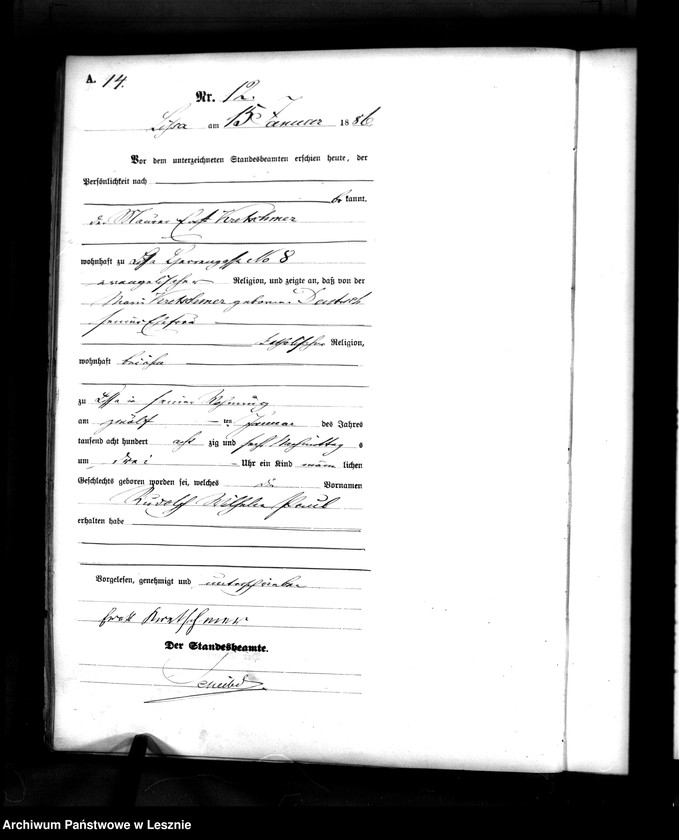 A. 14.
Nr. 12.
Lissa am 15 Januar 1886
Vor dem unterzeichneten Standesbeamten erschien heute, der
Persönlichkeit nach
be kannt,
der Maurer Ernst Kretschmer
wohnhaft zu Lissa No 8
evangelischer Religion, und zeigte an, daß von der
Marie Kretschmer geborene
seiner Ehefrau
katholischer Religion,
wohnhaft bei ihm
zu Lissa in seiner Wohnung
am zwölf ten Januar des Jahres
tausend acht hundert acht zig und sechs Nachmittag s
um drei Uhr ein Kind männ lichen
Geschlechts geboren worden sei, welches die Vornamen
Rudolf Wilhelm Paul
erhalten habe
Vorgelesen, genehmigt und unterschrieben
Ernst Kretschmer
Der Standesbeamte.
Archiwum Państwowe w Lesznie